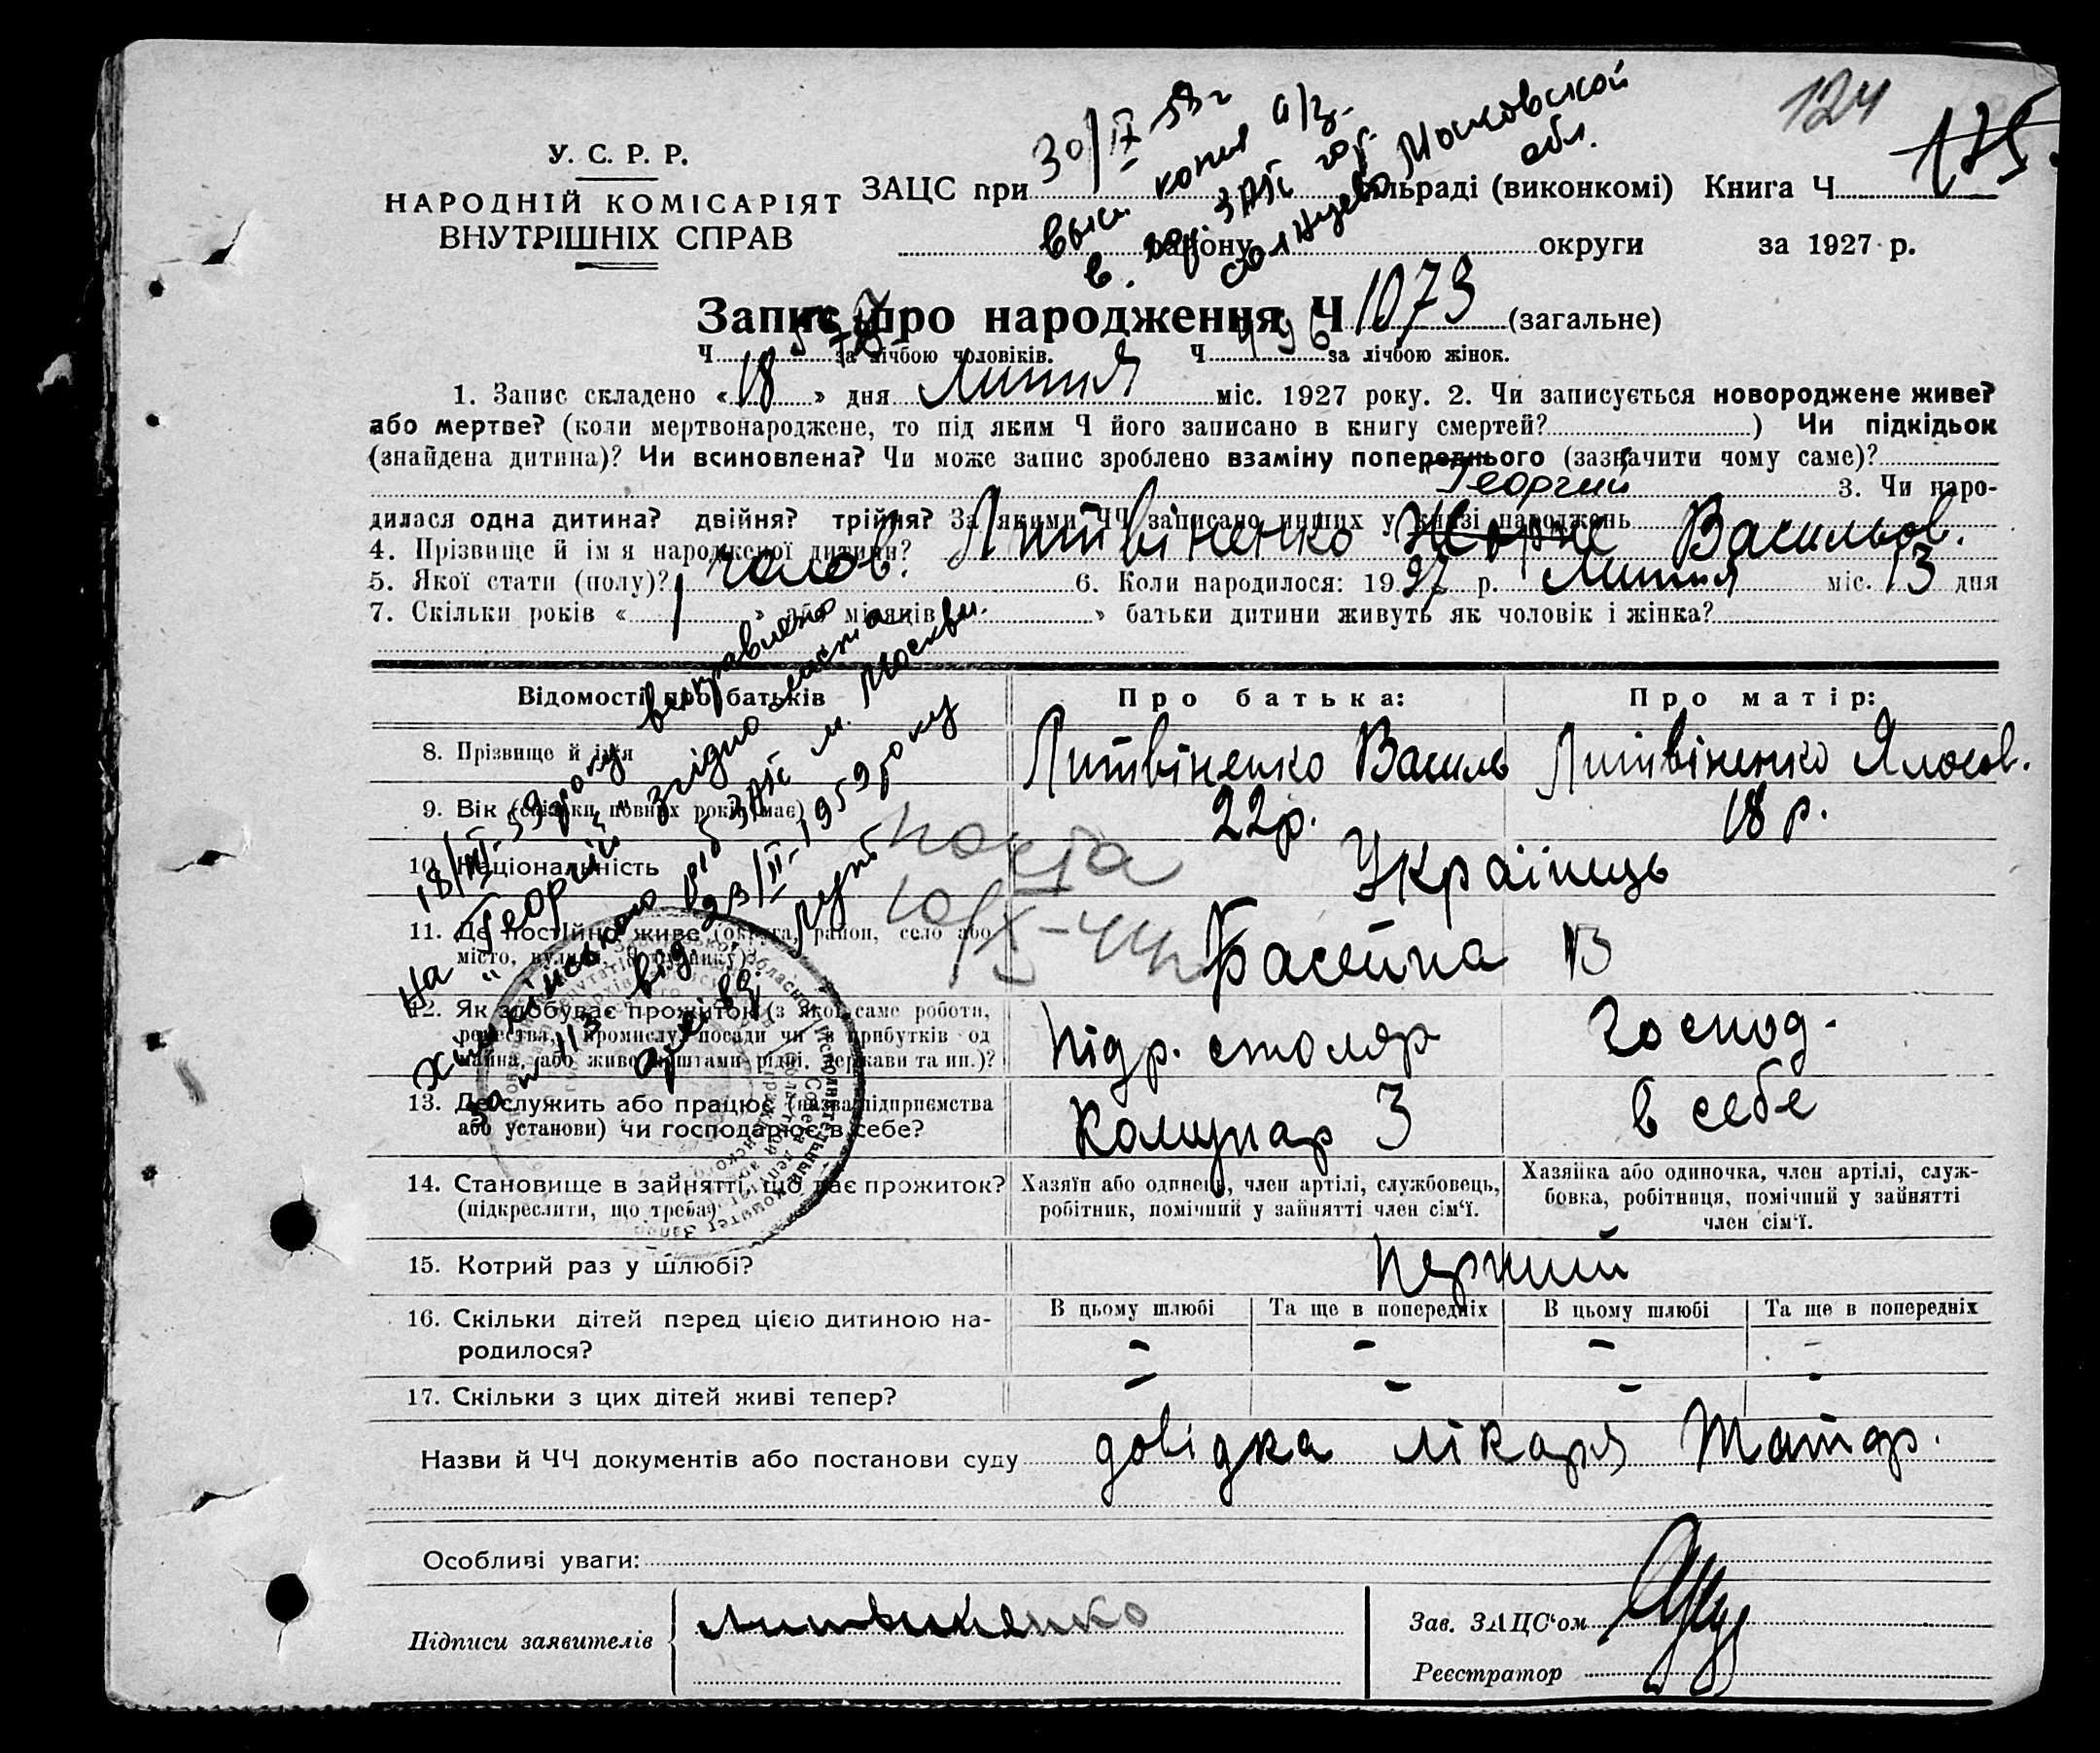 124
175
У. С. Р. Р.
НАРОДНІЙ КОМІСАРІЯТ
ВНУТРІШНІХ СПРАВ
30/IX-59 г
выс. копия а/з.
в. ЗАГС гор.
Московской
обл.
ЗАЦС при сільраді (виконкомі) Книга Ч
району округи за 1927 р.
Запис про народження Ч 1073 (загальне)
Ч за лічбою чоловіків. Ч 496 за лічбою жінок.
1. Запис складено «18» дня Липня міс. 1927 року. 2. Чи записується новороджене живе?
або мертве? (коли мертвонароджене, то під яким Ч його записано в книгу смертей? ) Чи підкідьок
(знайдена дитина)? Чи всиновлена? Чи може запис зроблено взаміну попереднього (зазначити чому саме)?
Георгий 3. Чи наро-
дилася одна дитина? двійня? трійня? За якими ЧЧ записано инших у книзі народжень
4. Прізвище й ім я народженої дитини? Литвіненко Жорже Васильов.
5. Якої стати (полу)? чолов. 6. Коли народилося: 1927 р. Липня міс. 13 дня
7. Скільки років « 1 » або місяців « » батьки дитини живуть як чоловік і жінка?
Відомості про батьків Про батька: Про матір:
8. Прізвище й імя Литвіненко Василь Литвіненко
9. Вік (скільки повних років має) 22р. 18 р.
10. Національність Українець
11. Де постійно живе (округа, район, село або
місто, вулиця, будинку)? Басейна 13
12. Як здобуває прожиток (з якої саме роботи,
ремества, промислу, посади чи з прибутків од
майна, або живе коштами рідні, держави та ин.)? підр. столяр господ.
13. Де служить або працює (назва підприємства
або установи) чи господарює в себе? Комунар 3 в себе
14. Становище в зайнятті, що дає прожиток?
(підкреслити, що треба)
Хазяїн або одинець, член артілі, службовець,
робітник, помічний у зайнятті член сім'ї.
Хазяйка або одиночка, член артілі, служ-
бовка, робітниця, помічний у зайнятті
член сім'ї.
15. Котрий раз у шлюбі? перший
16. Скільки дітей перед цією дитиною на-
родилося?
В цьому шлюбі Та ще в попередніх В цьому шлюбі Та ще в попередніх
- - - -
17. Скільки з цих дітей живі тепер? - - - -
Назви й ЧЧ документів або постанови суду довідка лікаря
Особливі уваги:
Підписи заявителів Литвиненко
Зав. ЗАЦС'ом
Реєстратор
18/III-59 року виправлено
на "Георгій" згідно
від ЗАГС м. Москви
від 23/II-1959 року